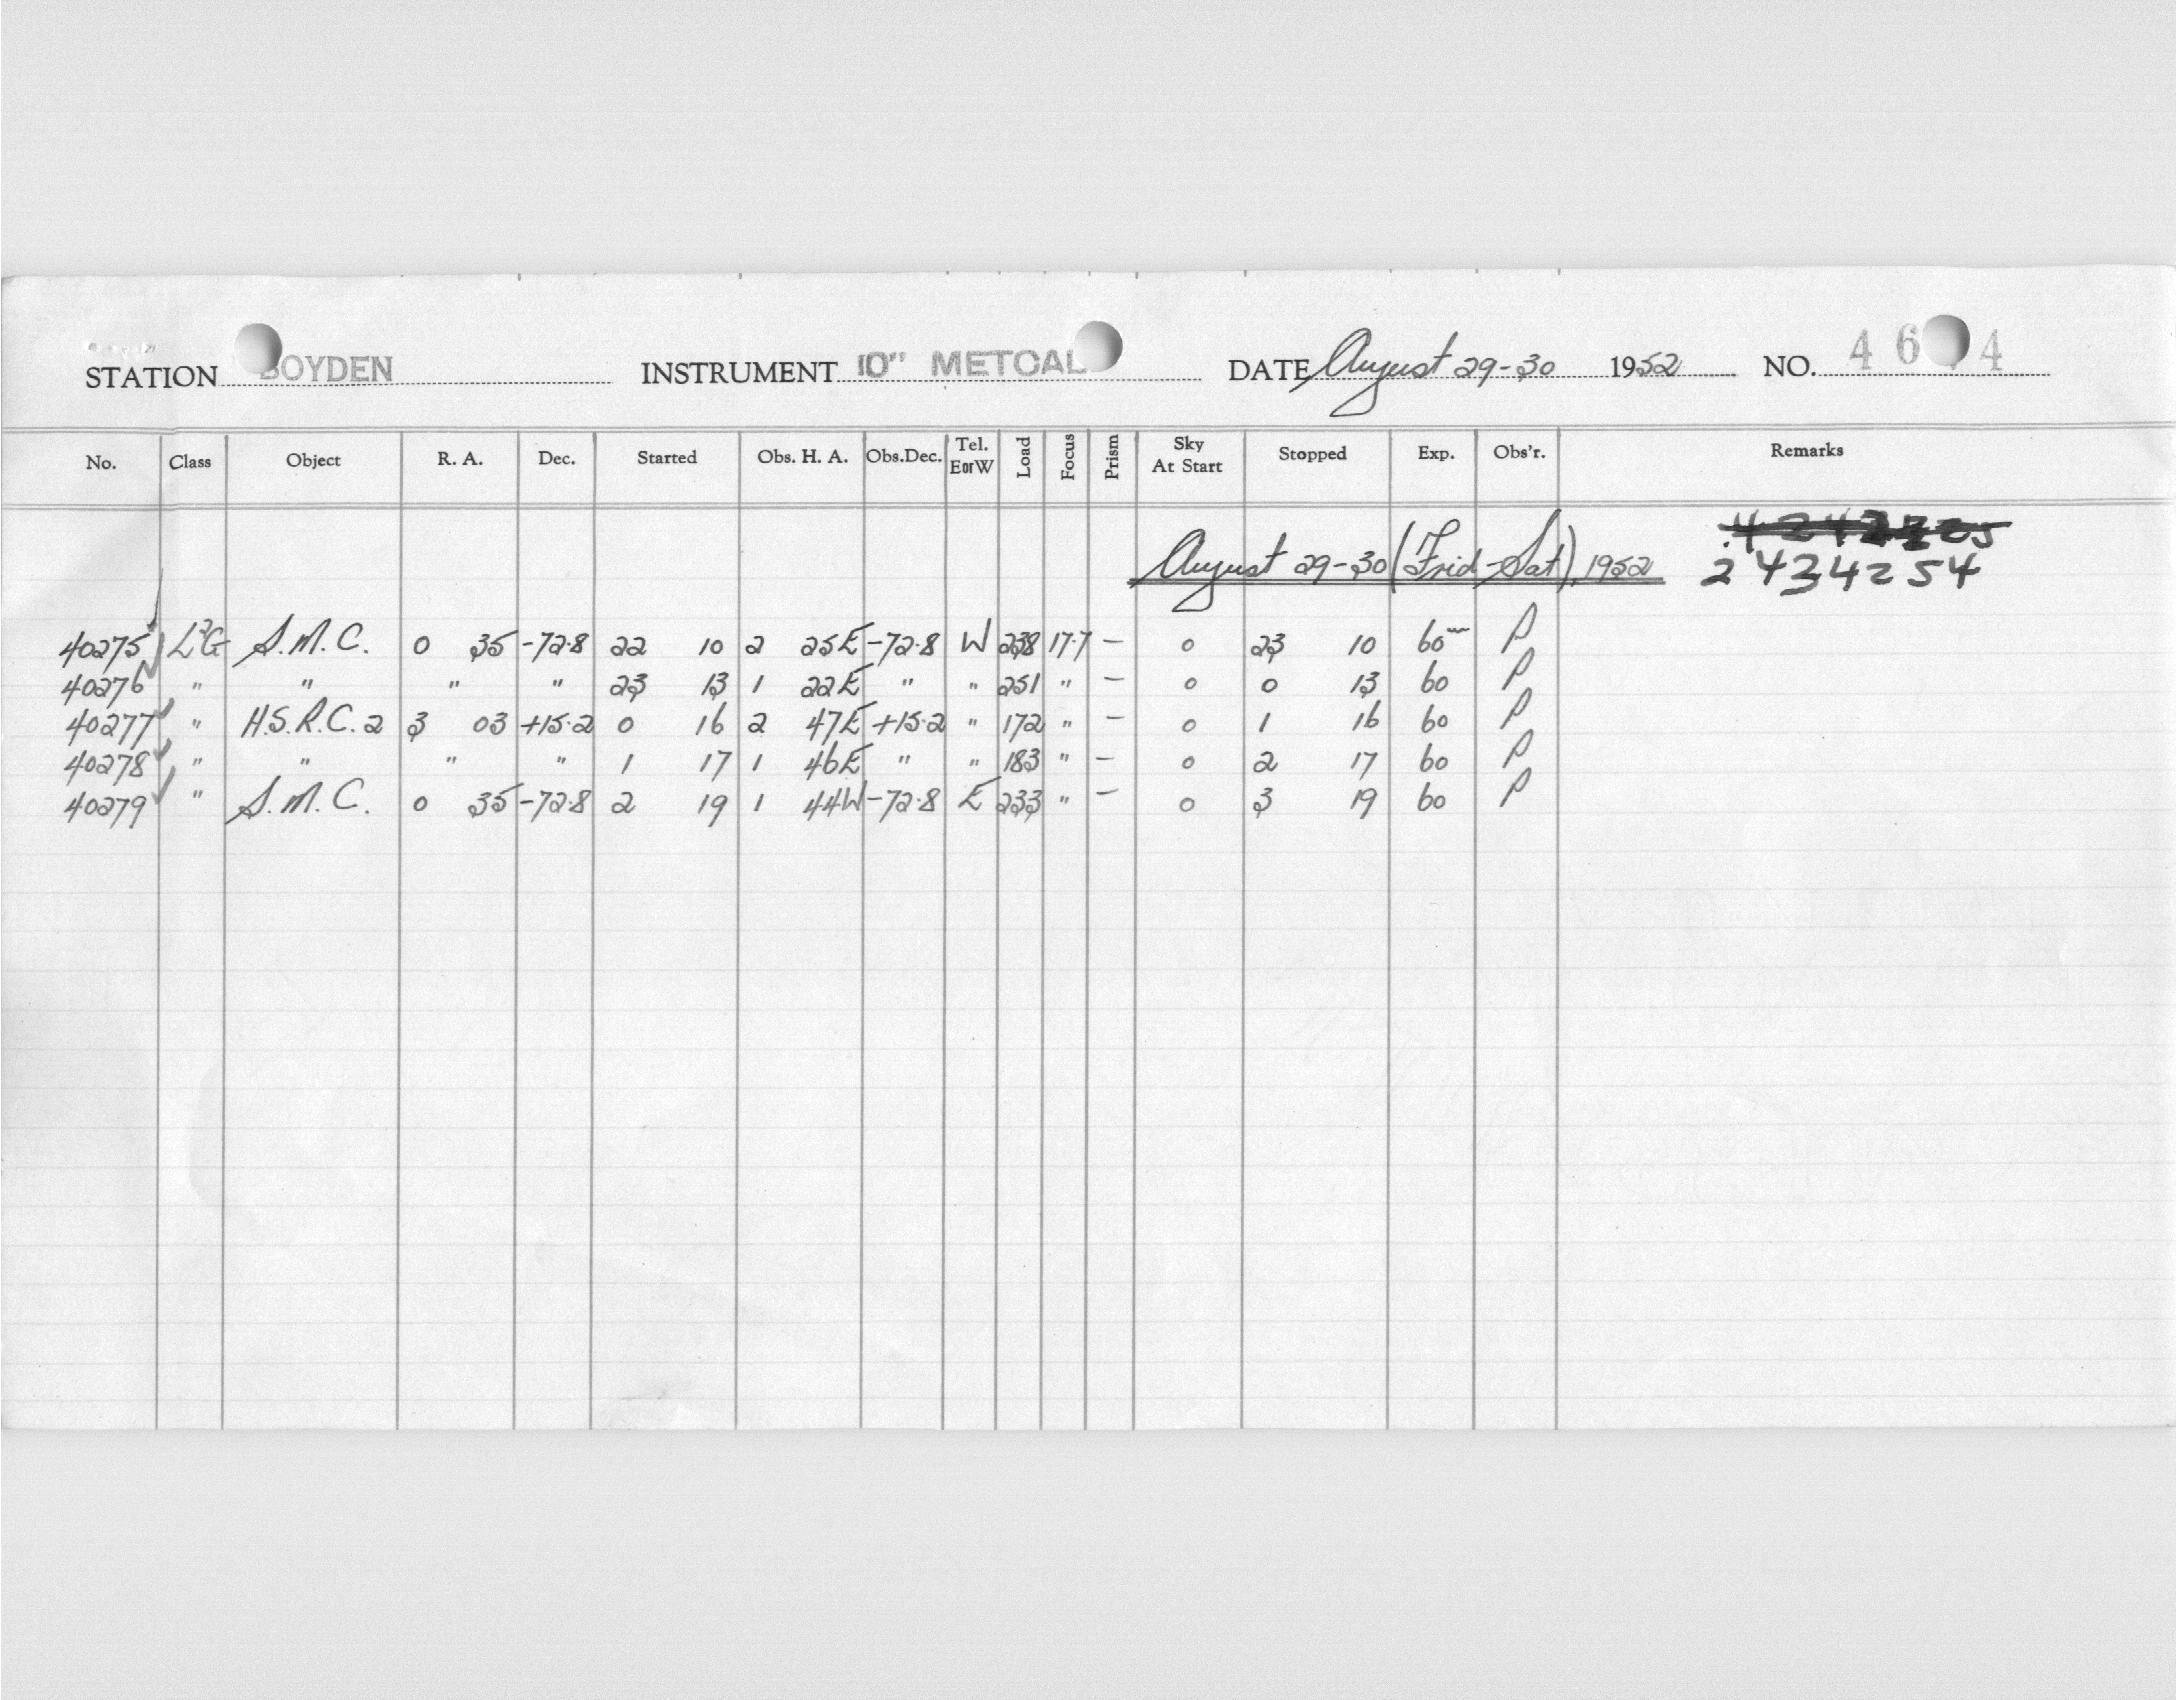 STATION BOYDEN INSTRUMENT 10" METCAL DATE August 29-30 1952 NO. 46 4
No. Class Object R. A. Dec. Started Obs. H. A. Obs.Dec. Tel. EorW Load Focus Prism Sky At Start Stopped Exp. Obs'r. Remarks
August 29-30 (Frid-Sat), 1952 2434254
40275 L²G S.M.C. 0 35 -72.8 22 10 2 25E -72.8 W 238 17.7 — 0 23 10 60m P
40276 " " " " 23 13 1 22E " " 251 " — 0 0 13 60 P
40277 " H.S.R.C. 2 3 03 +15.2 0 16 2 47E +15.2 " 172 " — 0 1 16 60 P
40278 " " " " 1 17 1 46E " " 183 " — 0 2 17 60 P
40279 " S.M.C. 0 35 -72.8 2 19 1 44W -72.8 E 233 " — 0 3 19 60 P